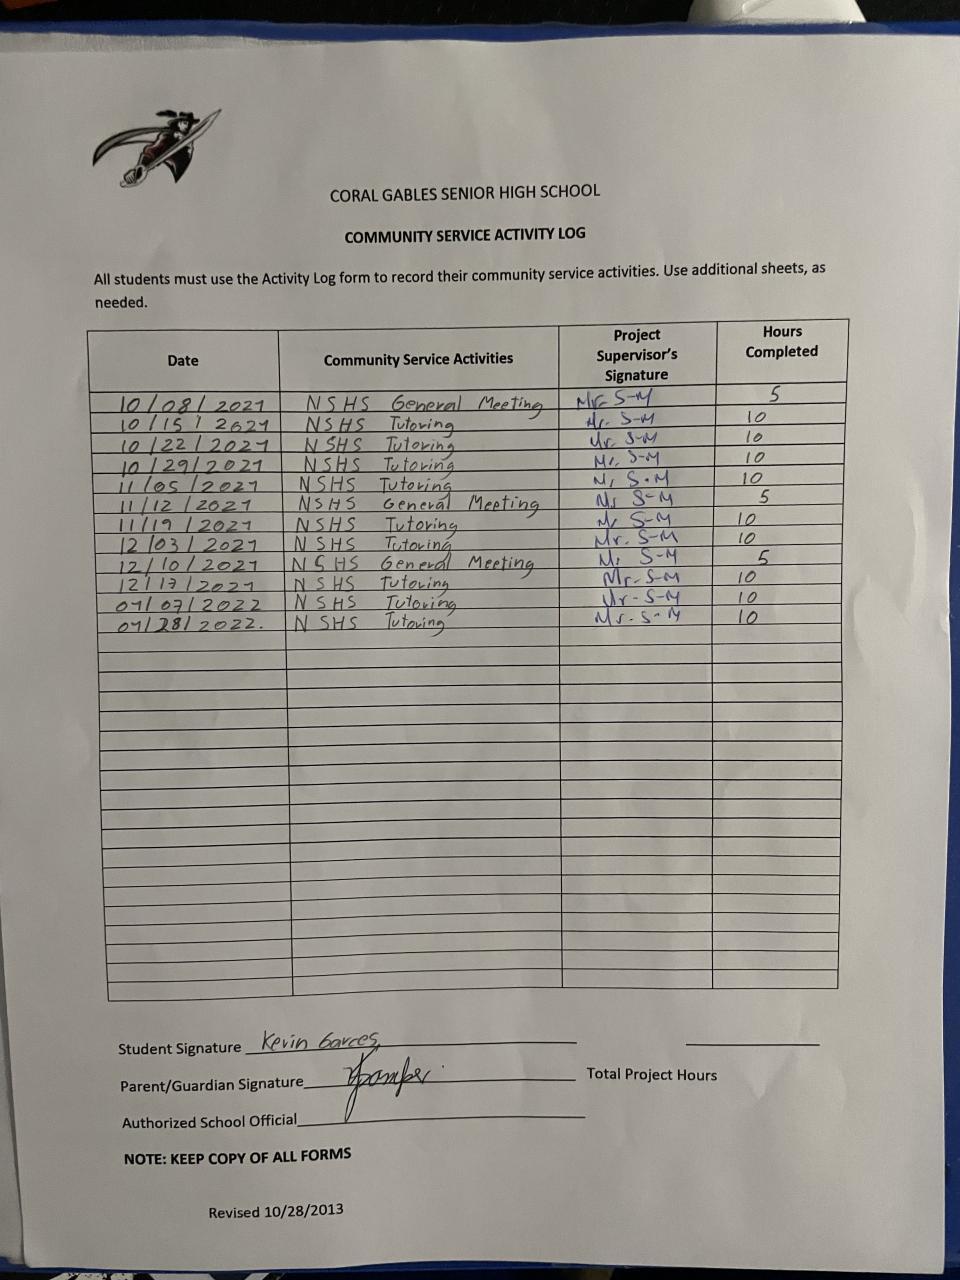 CORAL GABLES SENIOR HIGH SCHOOL
COMMUNITY SERVICE ACTIVITY LOG
All students must use the Activity Log form to record their community service activities. Use additional sheets, as
needed.
Date Community Service Activities Project Supervisor's Signature Hours Completed
10/08/2021 NSHS General Meeting Mr. S-M 5
10/15/2021 NSHS Tutoring Mr. S-M 10
10/22/2021 NSHS Tutoring Mr. S-M 10
10/29/2021 NSHS Tutoring Mr. S-M 10
11/05/2021 NSHS Tutoring Mr S-M 10
11/12/2021 NSHS General Meeting Mr S-M 5
11/19/2021 NSHS Tutoring Mr S-M 10
12/03/2021 NSHS Tutoring Mr. S-M 10
12/10/2021 NSHS General Meeting Mr S-M 5
12/17/2021 NSHS Tutoring Mr. S-M 10
01/07/2022 NSHS Tutoring Mr. S-M 10
01/28/2022. NSHS Tutoring Mr. S-M 10
Student Signature Kevin Garces
Parent/Guardian Signature Total Project Hours
Authorized School Official
NOTE: KEEP COPY OF ALL FORMS
Revised 10/28/2013